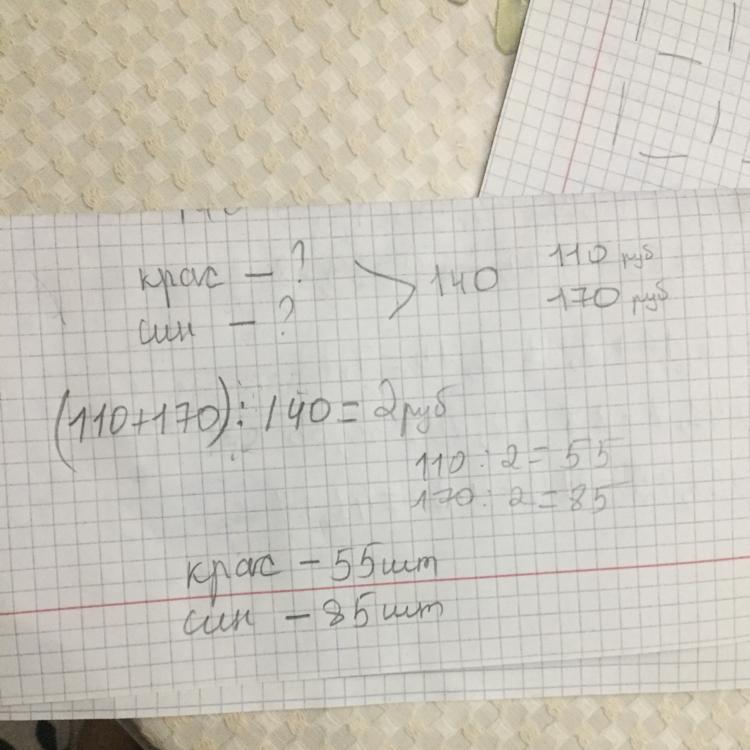 крас – ? > 140 110 руб
син – ? 170 руб
(110+170) : 140 = 2 руб
110 : 2 = 55
170 : 2 = 85
крас – 55 шт
син – 85 шт